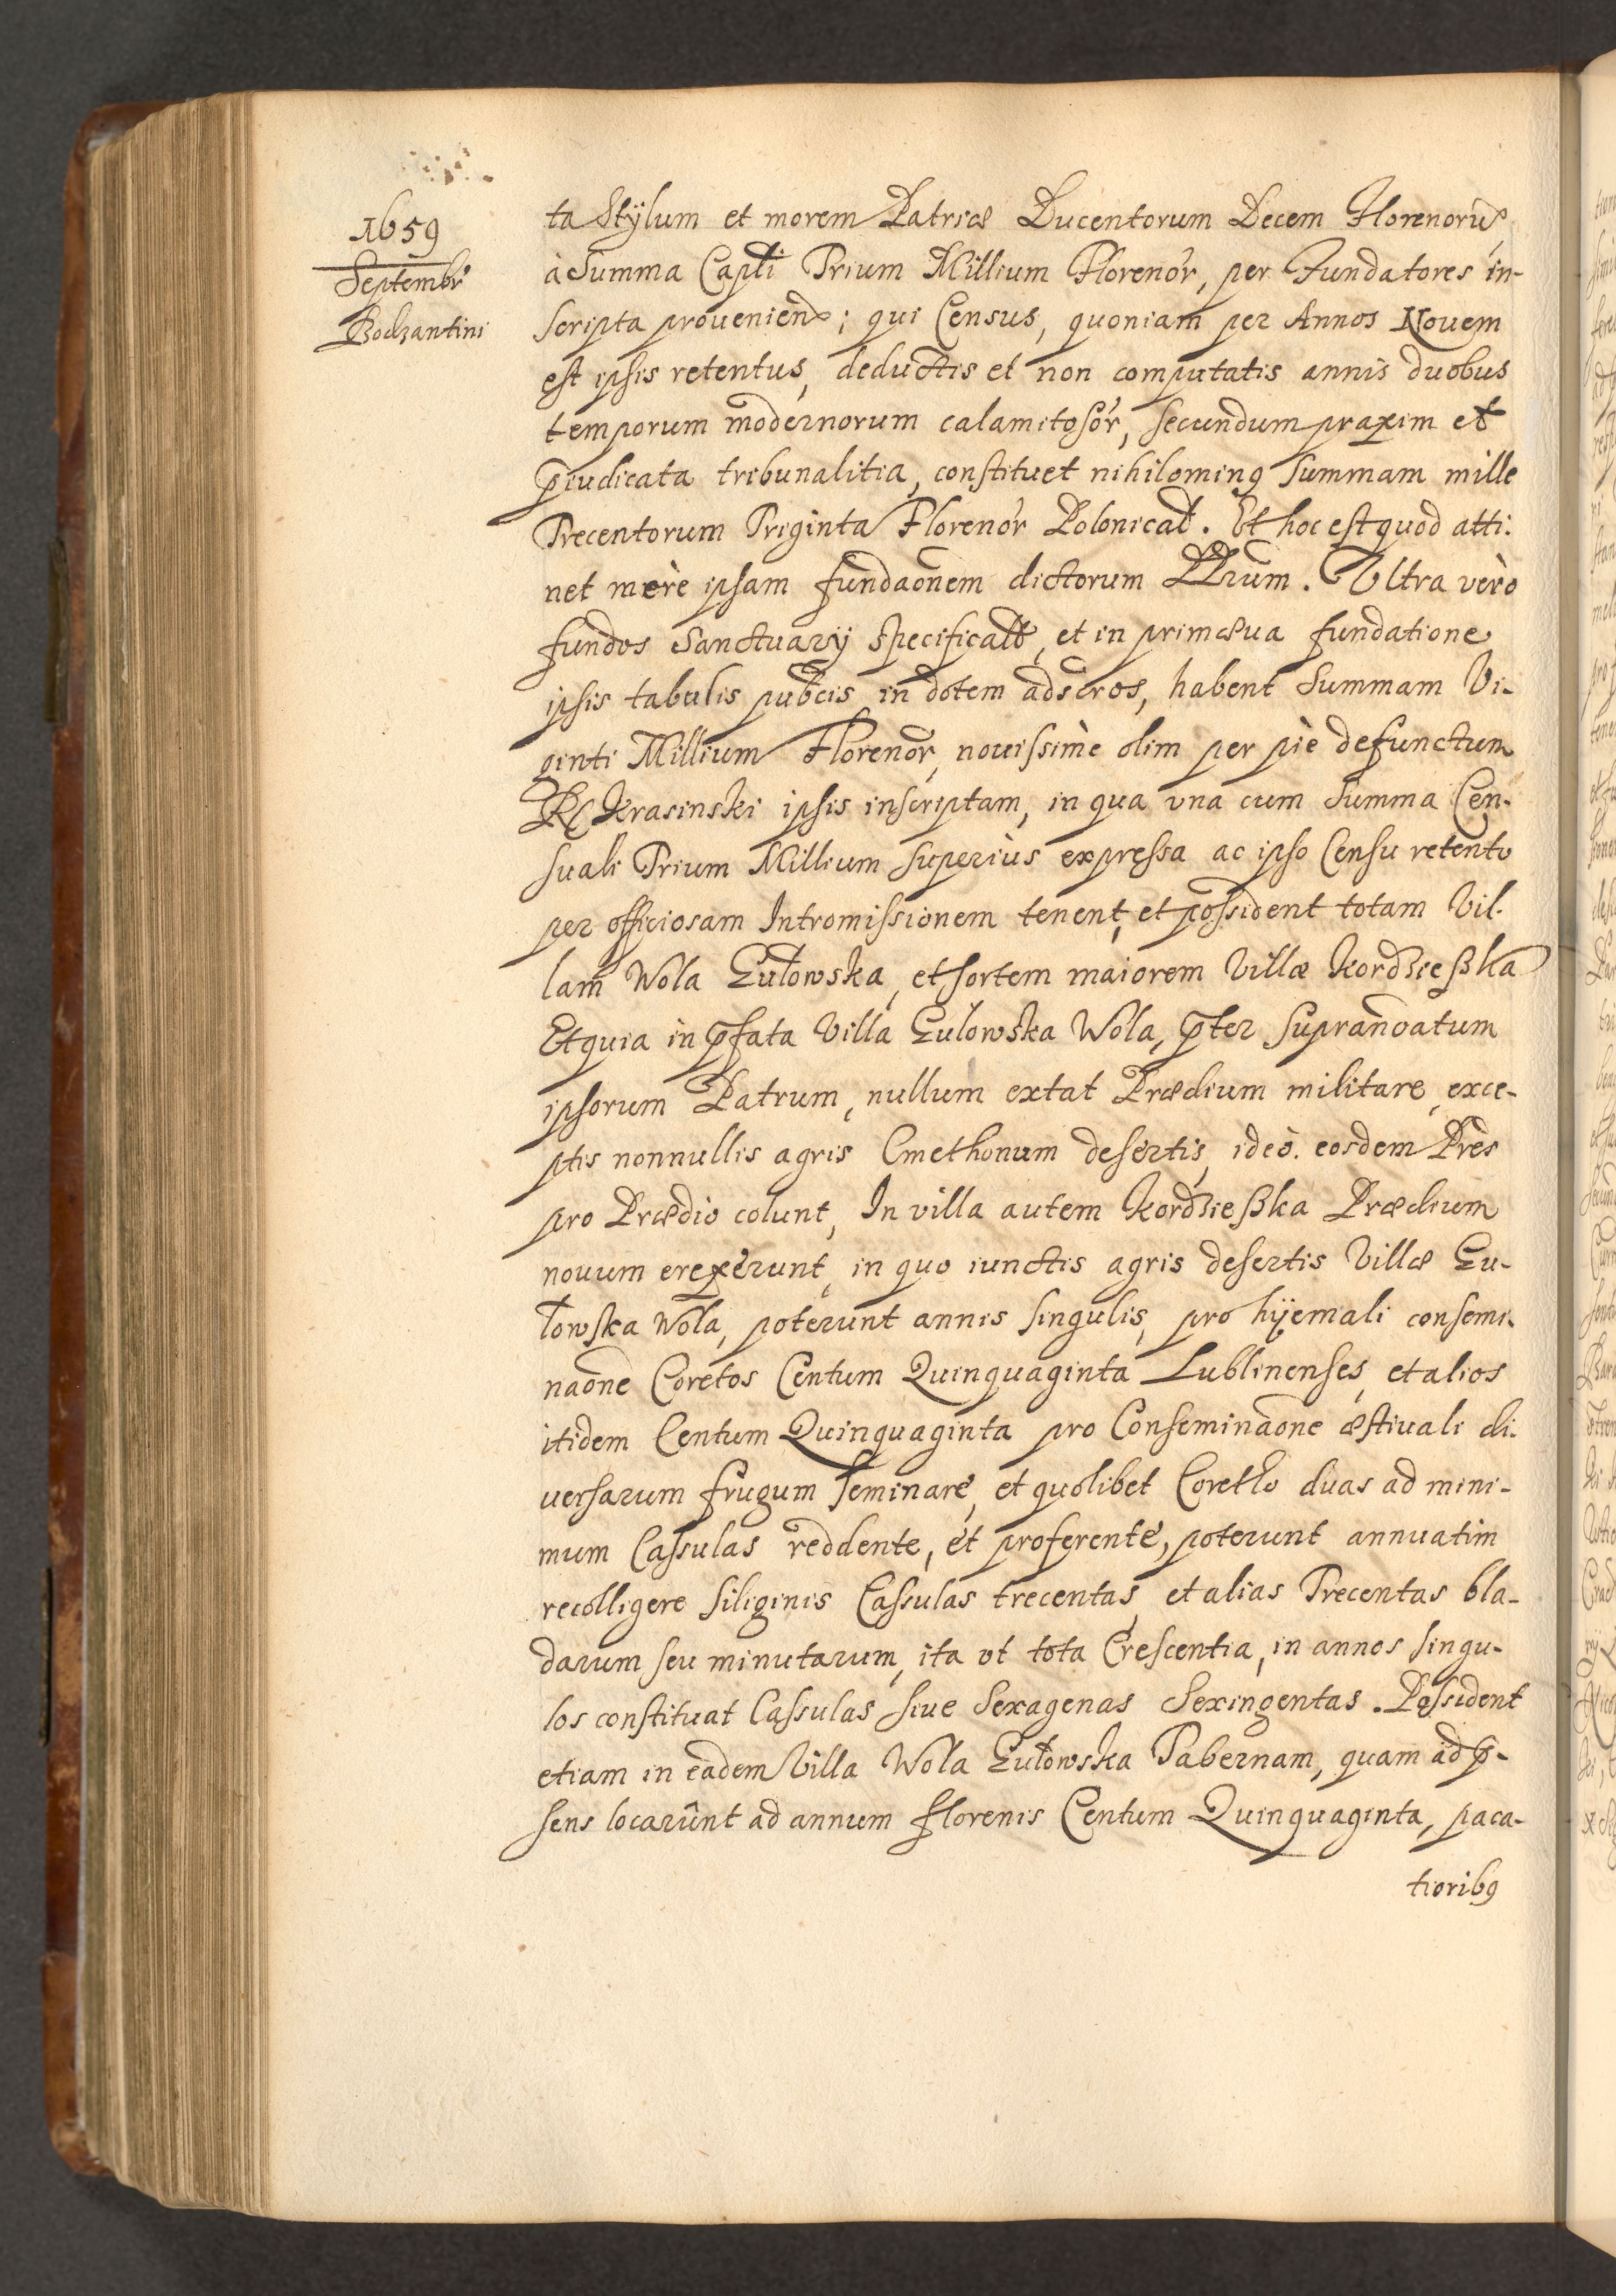 1659
Septembr
Bodzantini
ta Stÿlum et morem Patriæ Ducentorum Decem Florenorū
à Summa Capłi Trium Millium Florenor, per Fundatores in-
scripta prouenien; qui Census, quoniam per Annos Nouem
est ipsis retentus, deductis et non computatis annis duobus
temporum modernorum calamitosor, secundum praxim et
p̄iudicata tribunalitia, constituet nihilominq Summam mille
Trecentorum Triginta Florenor Polonical. Et hoc est quod atti:
net merè ipsam fundaōnem dictorum PPrum. Vltra verò
fundos Sanctuarÿ specificatt, et in primæua fundatione
ipsis tabulis pubcis in dotem adscros, habent Summam Vi-
ginti Millium Florenor, nouissimè olim per piè defunctum
Krasinski ipsis inscriptam, in qua vna cum Summa Cen-
suali Trium Millium superiùs expressa ac ipso Censu retento
per officiosam Intromissionem tenent, et possident totam Vil-
lam Wola Eułowska, et sortem maiorem Villæ Kordzießka
Et quia in p̄fata Villa Eułowska Wola, p̄ter supranoatum
ipsorum Patrum, nullum extat Prædium militare, exce-
ptis nonnullis agris Cmethonum desertis, ideò eosdem Pres
pro Prædio colunt, In villa autem Kordzießka Prædium
nouum erexerunt, in quo iunctis agris desertis Villæ Eu-
łowska Wola, poterunt annis singulis, pro hÿemali consemi-
naōne Coretos Centum Quinquaginta Lublinenses, et alios
itidem Centum Quinquaginta pro Conseminaōne æstiuali di-
uersarum frugum seminare, et quolibet Coretho duas ad mini-
mum Cassulas reddente, et proferente, poterunt annuatim
recolligere siliginis Cassulas trecentas, et alias Trecentas bla-
darum seu minutarum, ita vt tota Crescentia, in annos singu-
los constituat Cassulas siue Sexagenas Sexingentas. Possident
etiam in eadem Villa Wola Eułowska Tabernam, quam ad p̄-
sens locarunt ad annum florenis Centum Quinquaginta, paca-
tioribq